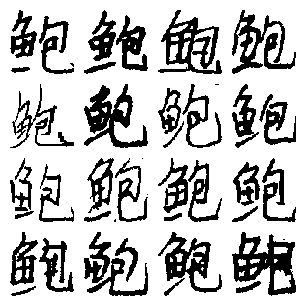 鲍鲍鲍鲍
鲍鲍鲍鲍
鲍鲍鲍鲍
鲍鲍鲍鲍